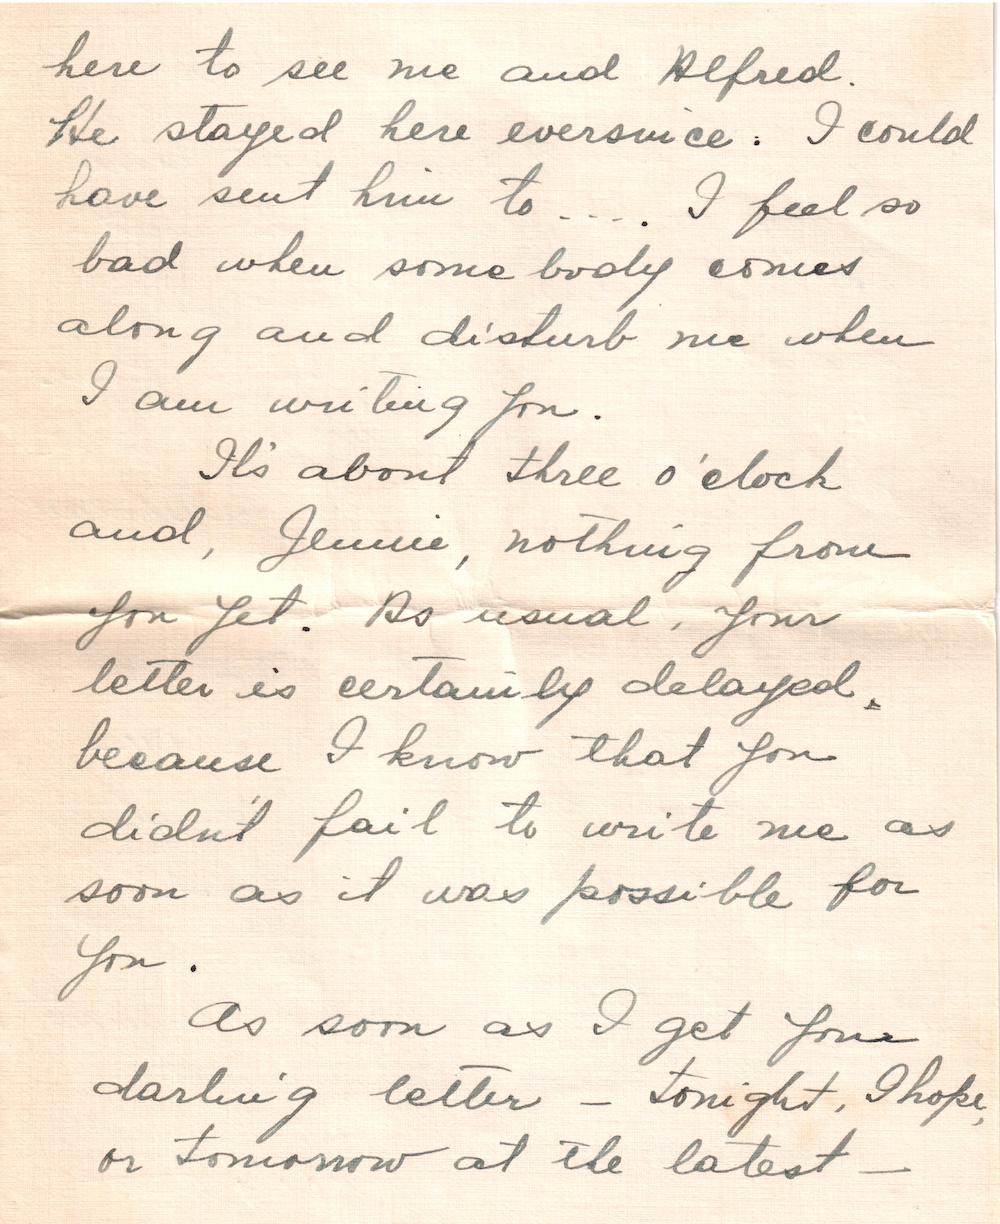 here to see me and Alfred.
He stayed here eversince. I could
have sent him to .... I feel so
bad when some body comes
along and disturb me when
I am writing you.
It's about three o'clock
and, Jennie, nothing from
you yet. As usual, your
letter is certainly delayed.
because I know that you
didn't fail to write me as
soon as it was possible for
you.
As soon as I get your
darling letter – tonight, I hope,
or tomorrow at the latest –